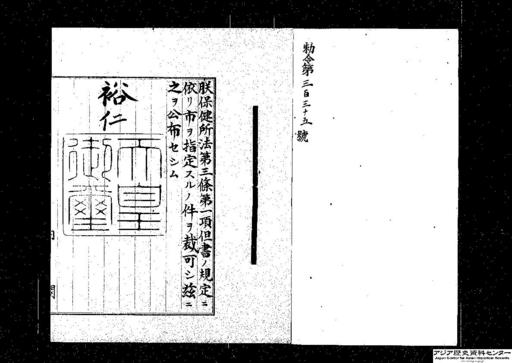 勅令第三百三十五號
朕保健所法第三條第一項但書ノ規定ニ
依リ市ヲ指定スルノ件ヲ裁可シ茲ニ
之ヲ公布セシム
裕仁
天皇御璽
内閣
アジア歴史資料センター
Japan Center for Asian Historical Records